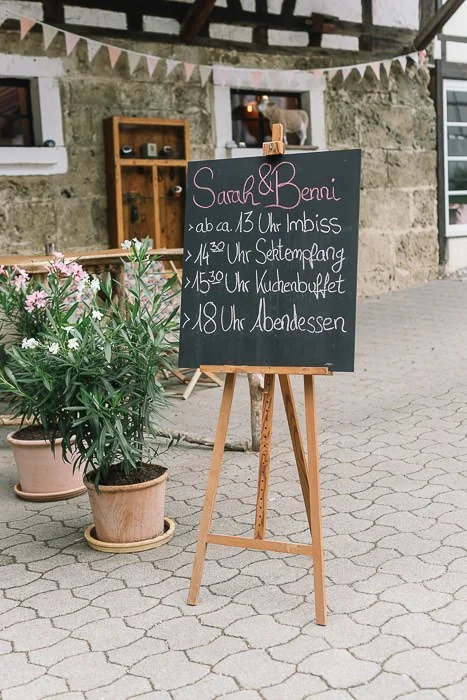 Sarah & Benni
> ab ca. 13 Uhr Imbiss
> 14³⁰ Uhr Sektempfang
> 15³⁰ Uhr Kuchenbuffet
> 18 Uhr Abendessen